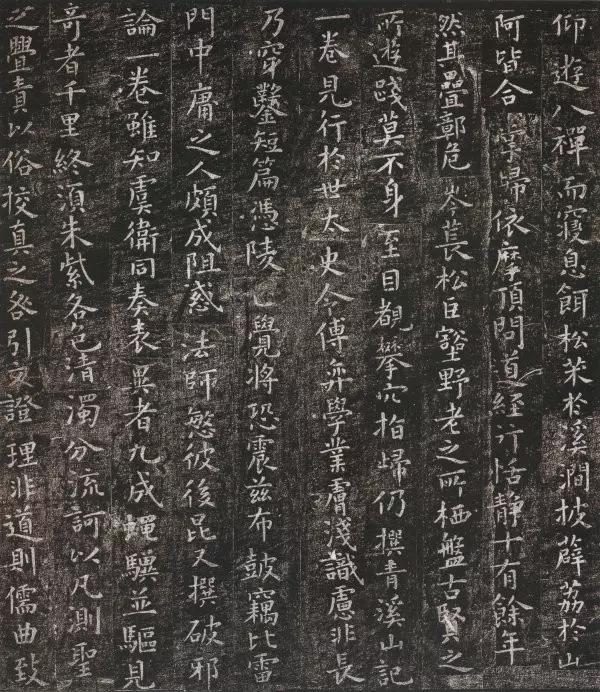 仰遊八禪而寢息餌松茱於溪澗披薜荔於山
阿皆合掌歸依摩頂問道經行恬靜十有餘年
然其疊鄣危岑萇松巨壑野老之所栖盤古賢之
所遊踐莫不身至目覩攀穴指歸仍撰青溪山記
一卷見行於世太史令傅弈學業膚淺識慮非長
乃穿鑿短篇憑陵正覺將恐震茲布皷竊比雷
門中庸之人頗成阻惑法師愍彼後昆又撰破邪
論一卷雖知虞衛同奏表異者九成蠅驥並驅見
奇者千里終須朱紫各色清濁分流訶以凡測聖
之舋責以俗校真之咎引文證理非道則儒曲致